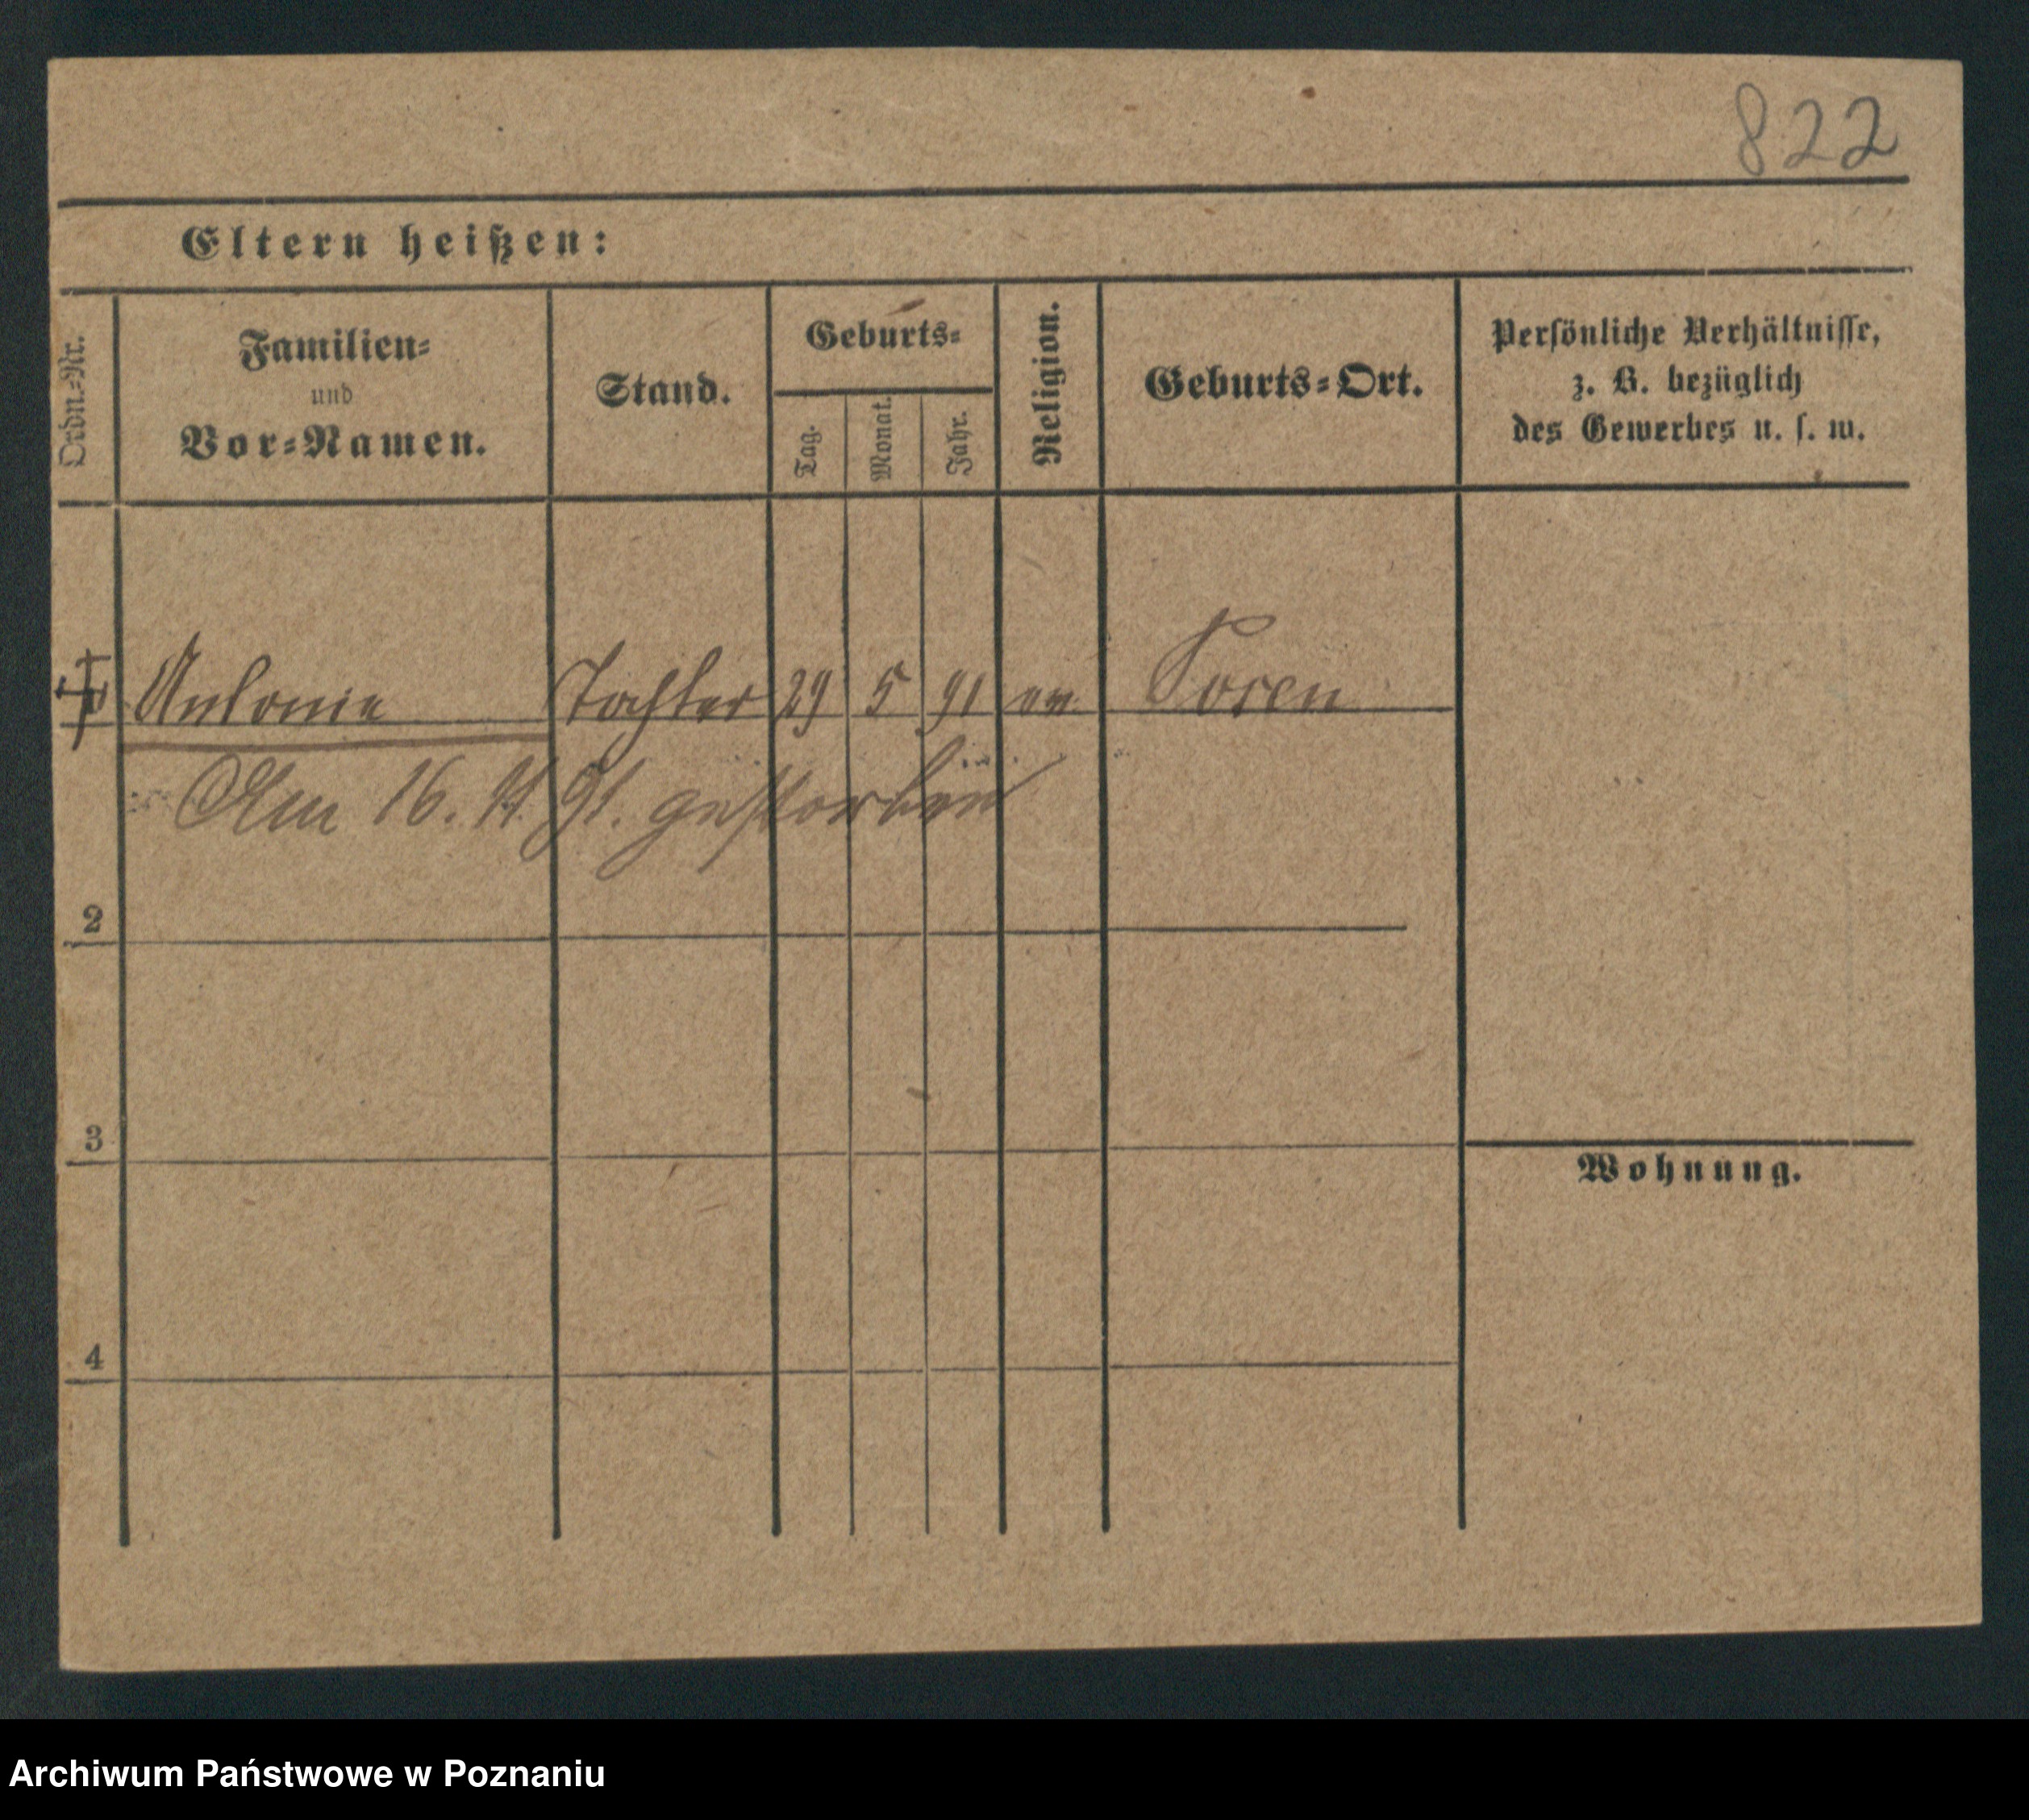 822
Eltern heißen:
Ordn.-Nr.
Familien-
und
Vor-Namen.
Stand.
Geburts-
Tag.
Monat.
Jahr.
Religion.
Geburts-Ort.
Persönliche Verhältnisse,
z. B. bezüglich
des Gewerbes u. s. w.
Antonie Tochter 29 5 91 ev. Posen
Am 16. 11. 91. gestorben
2
3
Wohnung.
4
Archiwum Państwowe w Poznaniu